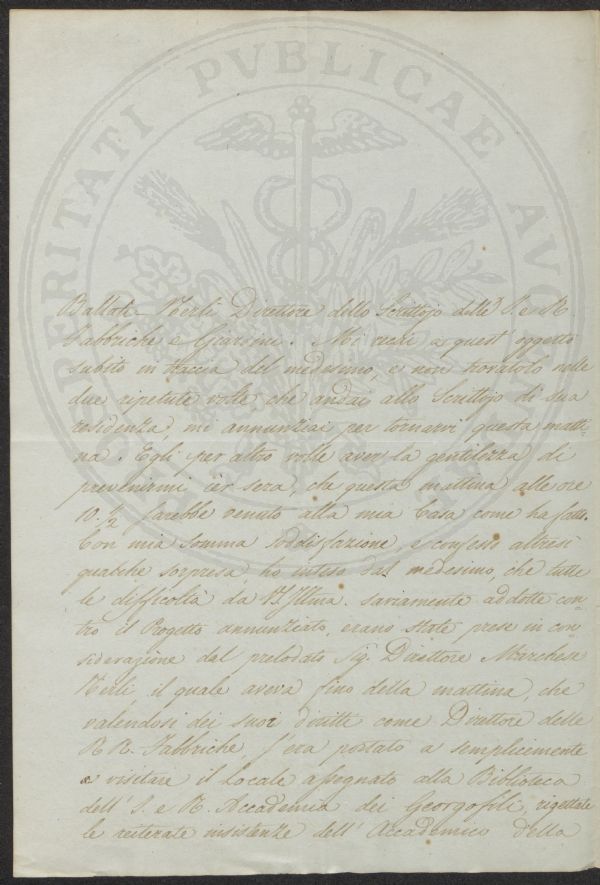 PROSPERITATI PVBLICAE AVGENDAE
Ballati Nerli Direttore dello Scrittojo delle I. e R.
Fabbriche e Giardini. Mi recai a quest' oggetto
subito in traccia del medesimo, e non trovatolo nelle
due ripetute volte che andai allo Scrittojo di sua
residenza, mi annunziai per tornarvi questa matti-
na. Egli per altro volle aver la gentilezza di
prevenirmi ier sera, che questa mattina alle ore
10. ½ sarebbe venuto alla mia Casa come ha fatto.
Con mia somma soddisfazione, e confesso altresì
qualche sorpresa, ho inteso dal medesimo, che tutte
le difficoltà da V.S. Illma. saviamente addotte con-
tro il Progetto annunziato, erano state prese in con-
siderazione dal prelodato Sig. Direttore Marchese
Nerli il quale aveva fino della mattina, che
valendosi dei suoi diritti come Direttore delle
R R. Fabbriche, s'era portato a semplicemente
visitare il Locale assegnato alla Biblioteca
dell' I. e R. Accademia dei Georgofili, rigettate
le reiterate insistenze dell' Accademico della